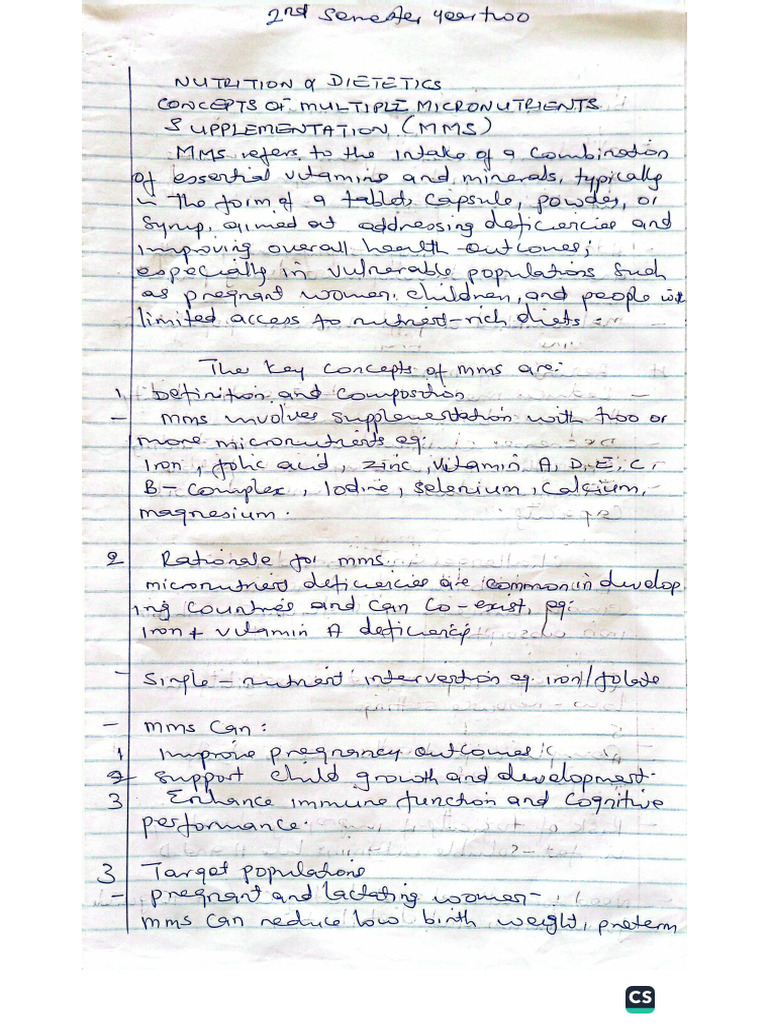 2nd Semester year two
NUTRITION & DIETETICS
CONCEPTS OF MULTIPLE MICRONUTRIENTS
SUPPLEMENTATION (MMS)
MMS refers to the intake of a combination
of essential vitamins and minerals, typically
in the form of a tablet, capsule, powder, or
syrup, aimed at addressing deficiencies and
improving overall health outcomes,
especially in vulnerable populations such
as pregnant women, children, and people with
limited access to nutrient-rich diets.
The key concepts of mms are:
1 Definition and composition
- mms involves supplementation with two or
more micronutrients eg:
Iron, folic acid, zinc, vitamin A, D, E, C,
B-complex, Iodine, selenium, calcium,
magnesium.
2 Rationale for mms.
micronutrient deficiencies are common in develop
ing countries and can co-exist, eg:
iron + vitamin A deficiency
- single-nutrient intervention eg iron/folate
- mms can:
1 Improve pregnancy outcomes
2 support child growth and development.
3 Enhance immune function and cognitive
performance.
3 Target populations
- pregnant and lactating women-
mms can reduce low birth weight, preterm
CS